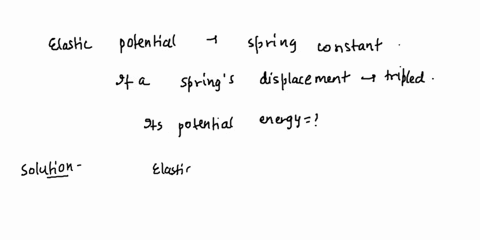 Elastic potential → spring constant.
If a spring's displacement → tripled.
Its potential energy=?
Solution- Elastic